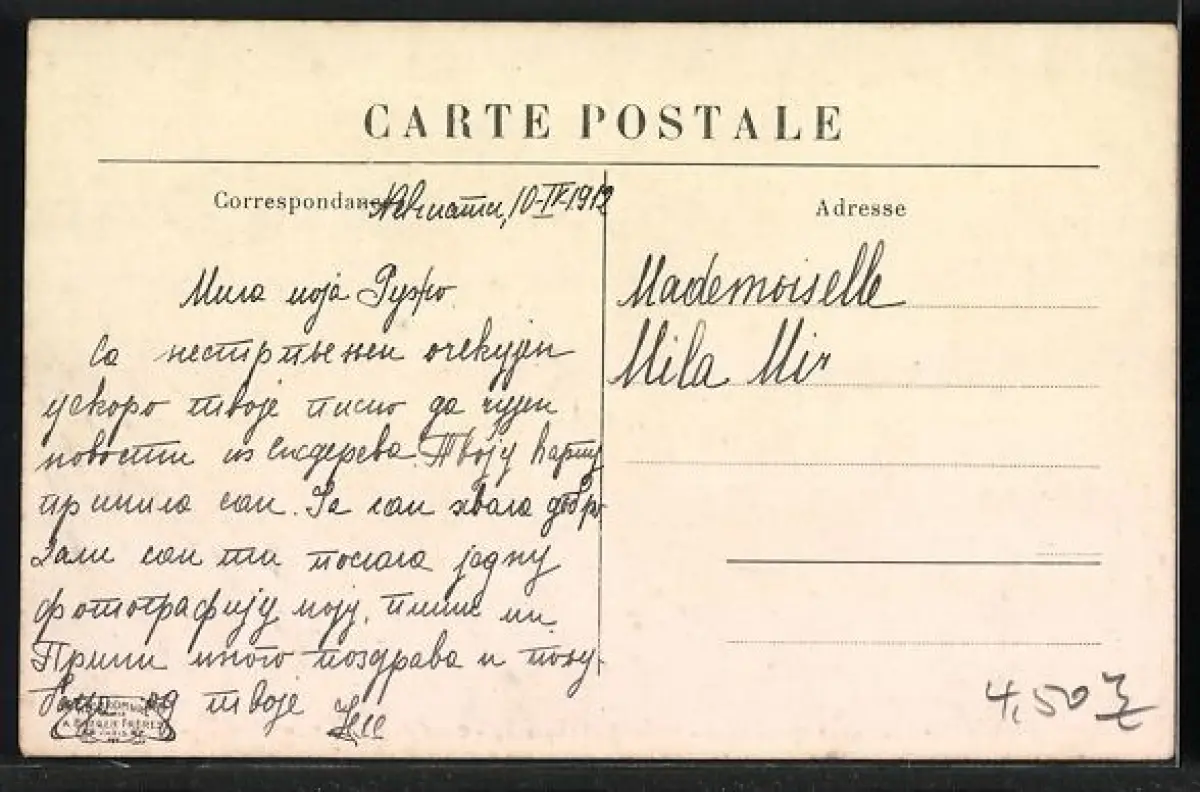 CARTE POSTALE
Correspondance
10-IV-1912
Adresse
Мила моја Ружо
Са нестрпљењем очекујем
ускоро твоје писмо да чујем
новости из Смедерева. Твоју карту
примила сам. Ја сам хвала добро
Дали сам ти послала једну
фотографију моју, пиши ми.
Прими много поздрава и полу-
баца од твоје
Mademoiselle
Mila Mir
4,50